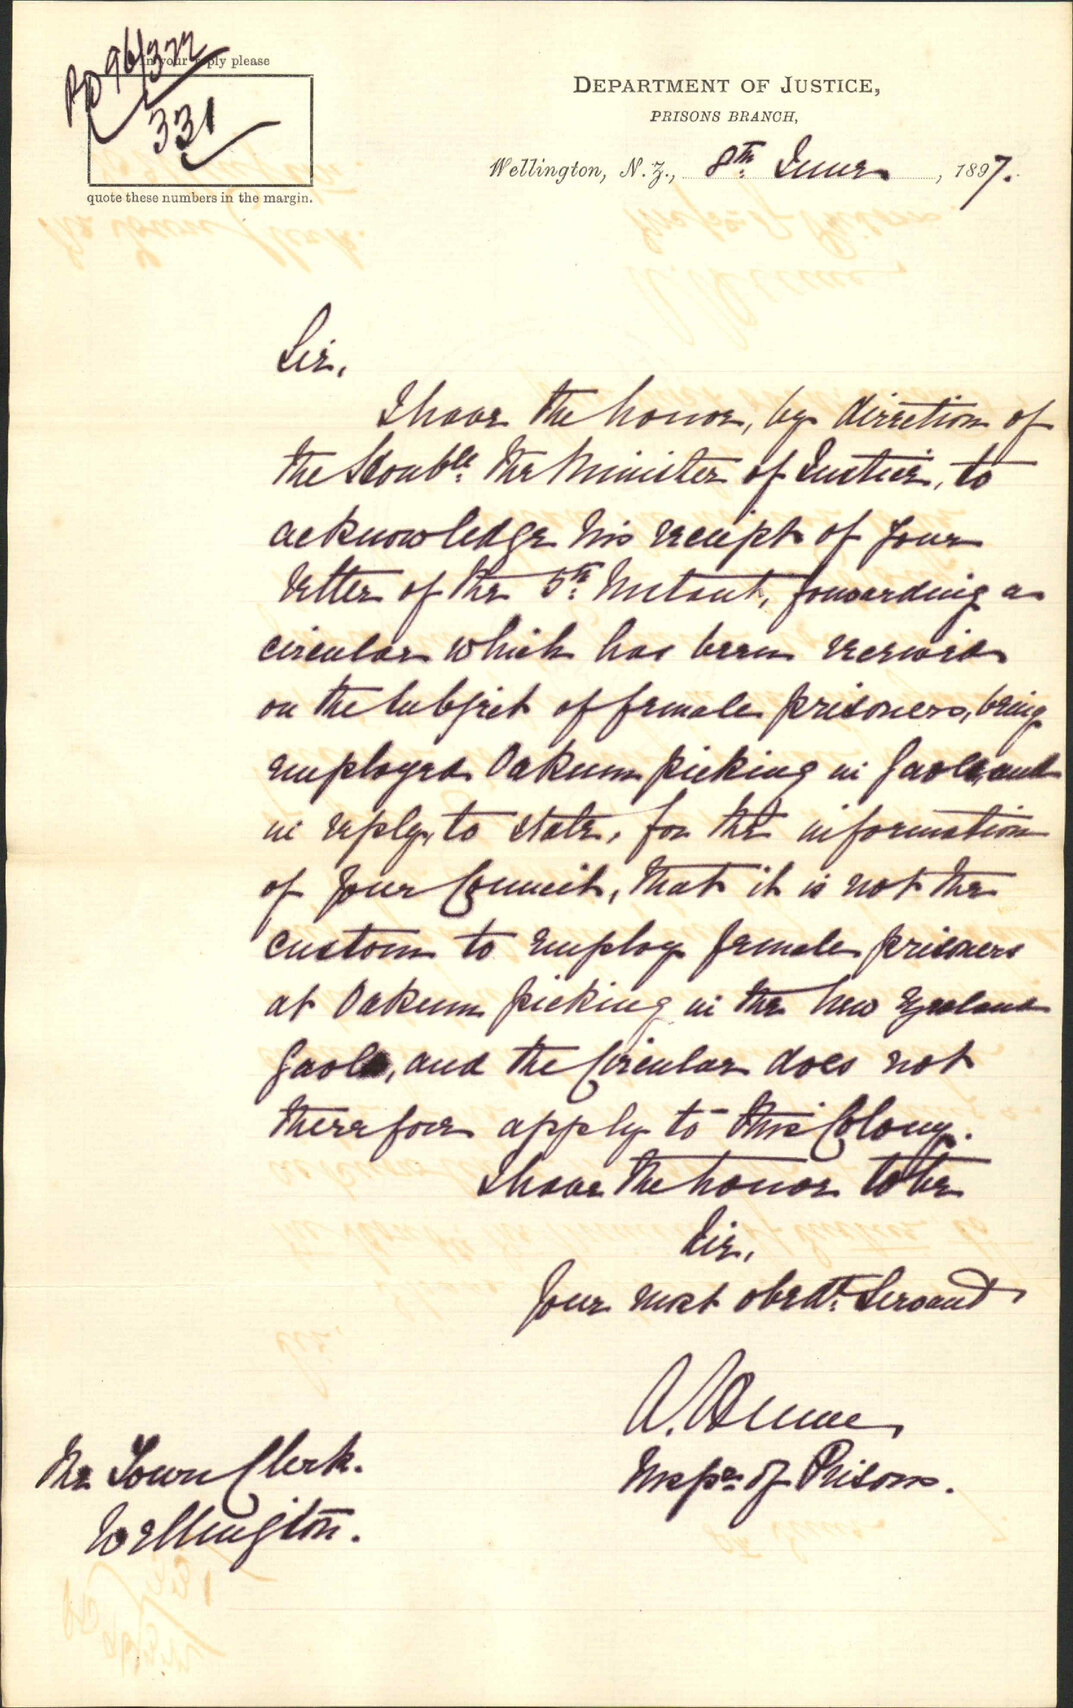 In your reply please
PD 96/322
331
quote these numbers in the margin.
DEPARTMENT OF JUSTICE,
PRISONS BRANCH,
Wellington, N.Z., 8th June, 1897.
Sir,
I have the honor, by direction of
the Honble. the Minister of Justice, to
acknowledge his receipt of your
letter of the 5th Instant, forwarding a
circular which has been received
on the subject of female prisoners, being
employed Oakum picking in Gaols, and
in reply, to state, for the information
of your Council, that it is not the
custom to employ female prisoners
at Oakum picking in the New Zealand
Gaols, and the Circular does not
therefore apply to this Colony.
I have the honor to be
Sir,
Your most obedt. Servant
A. Hume
Inspr. of Prisons.
The Town Clerk.
Wellington.